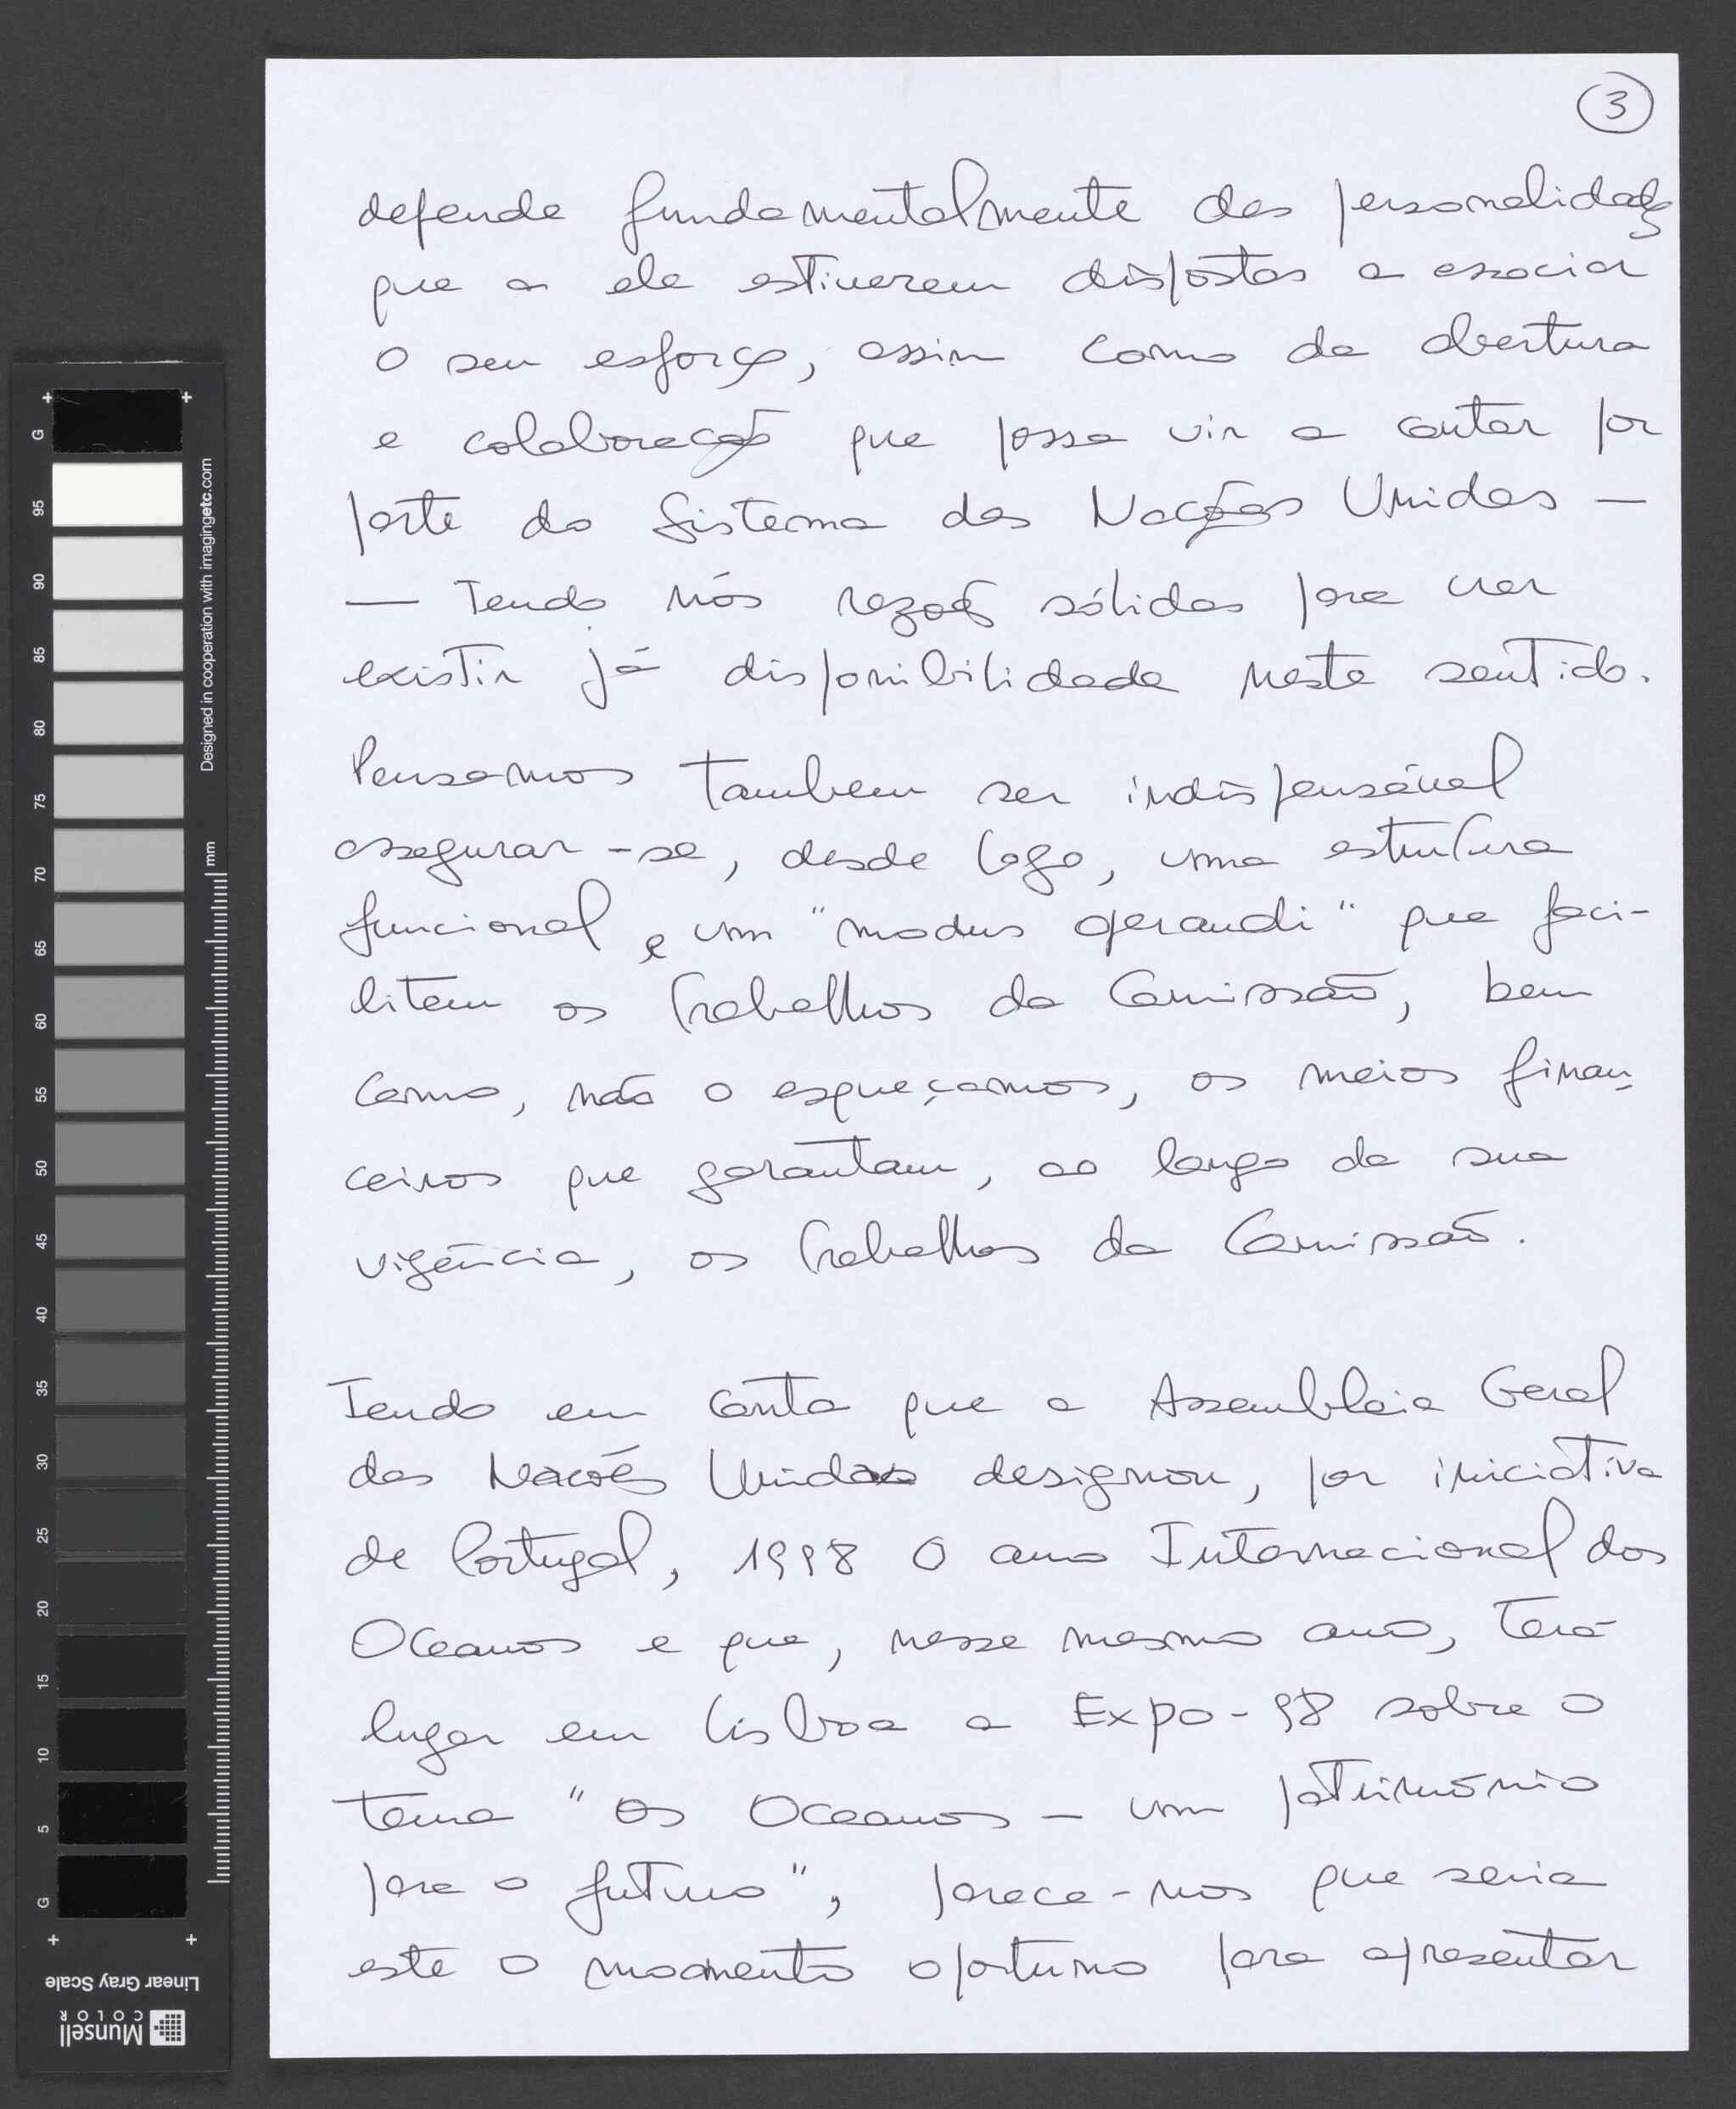 3
defende fundamentalmente das personalidades
que a ela estiverem dispostas a associar
o seu esforço, assim como da abertura
e colaboração que possa vir a contar por
parte do Sistema das Nações Unidas —
— Tendo nós razões sólidas para crer
existir já disponibilidade neste sentido.
Pensamos tambem ser indispensável
assegurar-se, desde logo, uma estrutura
funcional e um "modus operandi" que faci-
litem os trabalhos da Comissão, bem
como, não o esqueçamos, os meios finan-
ceiros que garantam, ao longo da sua
vigência, os trabalhos da Comissão.
Tendo em conta que a Assembleia Geral
das Nações Unidas designou, por iniciativa
de Portugal, 1998 o ano Internacional dos
Oceanos e que, nesse mesmo ano, terá
lugar em Lisboa a Expo-98 sobre o
tema "Os Oceanos – um património
para o futuro", parece-nos que seria
este o momento oportuno para apresentar
G
95
90
85
80
75
70
65
60
55
50
45
40
35
30
25
20
15
10
5
G
Designed in cooperation with imagingetc.com
mm
Linear Gray Scale
Munsell
COLOR